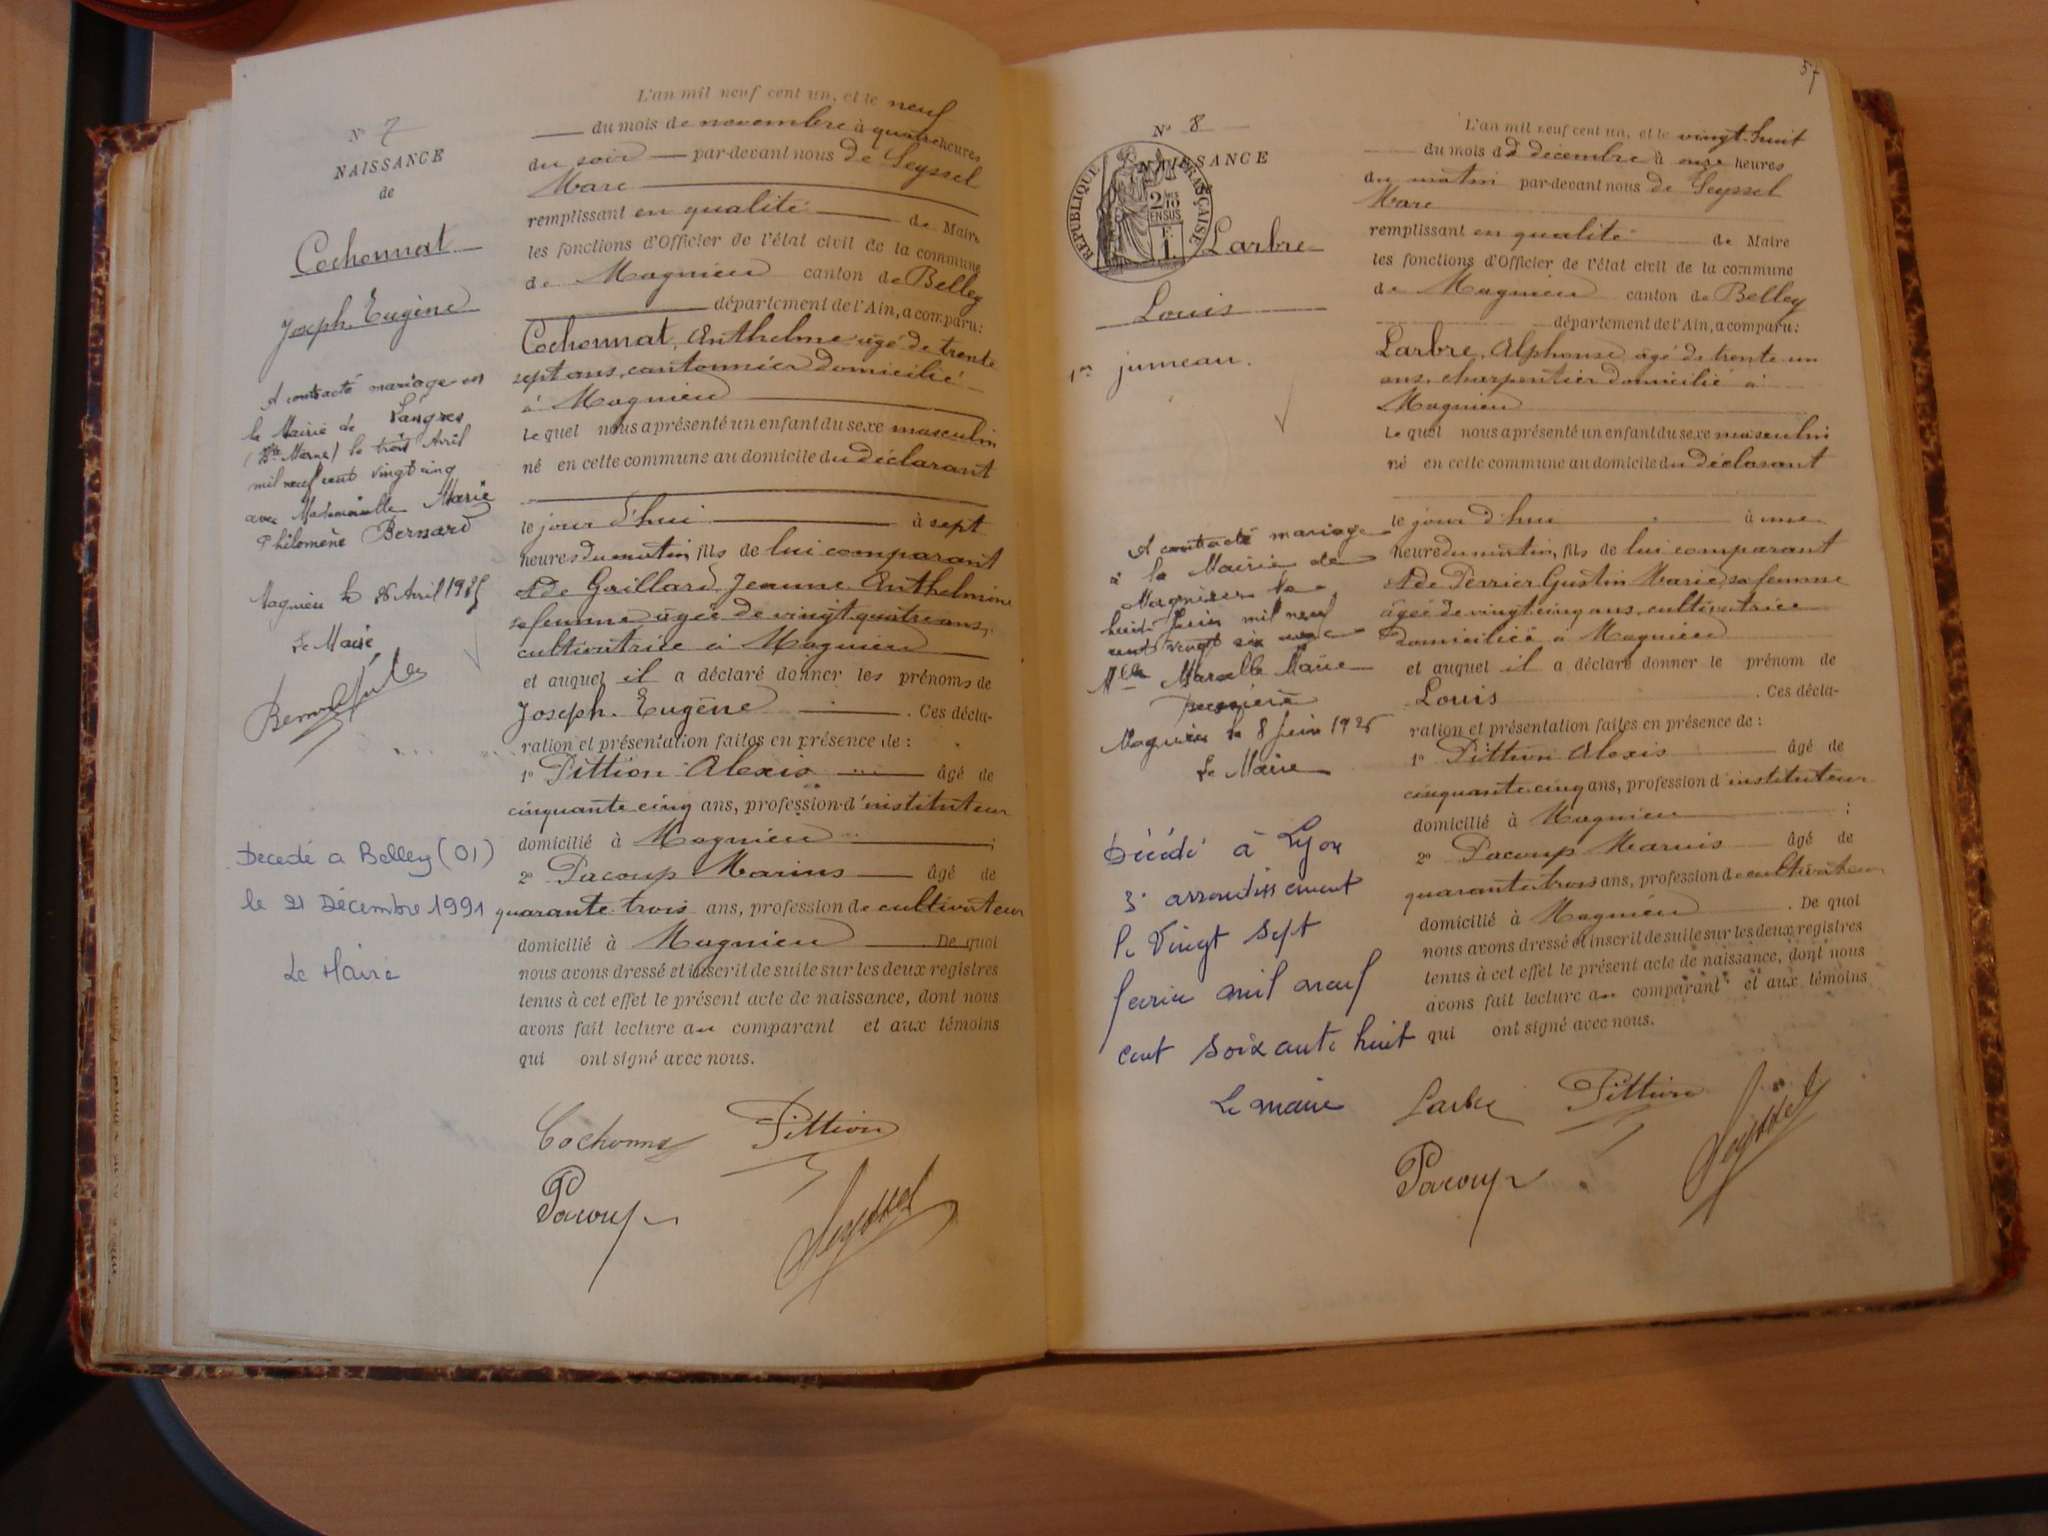 N° 7
NAISSANCE
de
Cochonnat
Joseph Eugène
A contracté mariage en
la Mairie de Langres
(Hte Marne) le trois Avril
mil neuf cent vingt cinq
avec Mademoiselle Marie
Philomène Bernard
Magnieu le 28 Avril 1925
Le Maire
Décédé a Belley (01)
le 21 Décembre 1991
Le Maire
L'an mil neuf cent un, et le neuf
du mois de novembre à quatre heures
du soir par-devant nous de Seyssel
Marc
remplissant en qualité de Maire
les fonctions d'Officier de l'état civil de la commune
de Magnieu canton de Belley
département de l'Ain, a comparu:
Cochonnat, Anthelme âgé de trente
sept ans, cantonnier domicilié
à Magnieu
Lequel nous a présenté un enfant du sexe masculin
né en cette commune au domicile du déclarant
le jour d'hui à sept
heures du matin, fils de lui comparant
et de Gaillard Jeanne Anthelmine
sa femme âgée de vingt quatre ans,
cultivatrice à Magnieu
et auquel il a déclaré donner les prénoms de
Joseph Eugène . Ces décla-
ration et présentation faites en présence de :
1° Pittion Alexis âgé de
cinquante cinq ans, profession d'instituteur
domicilié à Magnieu ;
2° Pacoup Marius âgé de
quarante trois ans, profession de cultivateur
domicilié à Magnieu De quoi
nous avons dressé et inscrit de suite sur les deux registres
tenus à cet effet le présent acte de naissance, dont nous
avons fait lecture au comparant et aux témoins
qui ont signé avec nous.
Cochonna Pittion
Pacoup Seyssel
57
N° 8
NAISSANCE
RÉPUBLIQUE FRANÇAISE
2/10
EN SUS
1 F.
Larbre
Louis
1er jumeau.
A contracté mariage
à la Mairie de
Magnieu le
huit Juin mil neuf
cent vingt six avec
Mlle Marcelle Marie
Magnieu le 8 Juin 1926
Le Maire
Décédé à Lyon
3e arrondissement
le Vingt sept
février mil neuf
cent soixante huit
Le maire
L'an mil neuf cent un, et le vingt-huit
du mois de décembre à onze heures
du matin par-devant nous de Seyssel
Marc
remplissant en qualité de Maire
les fonctions d'Officier de l'état civil de la commune
de Magnieu canton de Belley
département de l'Ain, a comparu:
Larbre, Alphonse âgé de trente un
ans, charpentier domicilié à
Magnieu
Lequel nous a présenté un enfant du sexe masculin
né en cette commune au domicile du déclarant
le jour d'hui à une
heure du matin, fils de lui comparant
et de Perrier Gustin Marie, sa femme
âgée de vingt cinq ans, cultivatrice
domiciliée à Magnieu
et auquel il a déclaré donner le prénom de
Louis . Ces décla-
ration et présentation faites en présence de :
1° Pittion Alexis âgé de
cinquante cinq ans, profession d'instituteur
domicilié à Magnieu ;
2° Pacoup Marius âgé de
quarante trois ans, profession de cultivateur
domicilié à Magnieu . De quoi
nous avons dressé et inscrit de suite sur les deux registres
tenus à cet effet le présent acte de naissance, dont nous
avons fait lecture au comparant et aux témoins
qui ont signé avec nous.
Larbre Pittion
Pacoup Seyssel